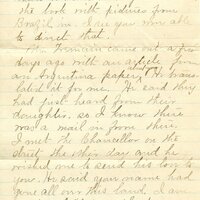 the book with pictures from
Brazil in. I see you were able
to direct that.
Mr. came out a few
days ago with an article from
an Argentina paper, he trans-
lated it for me. He said they
had just heard from their
daughter, so I know there
was a mail in from there.
I met the Chancellor on the
street the other day and he
wished me to send his love to
you. He said your name had
gone all over this land. I am